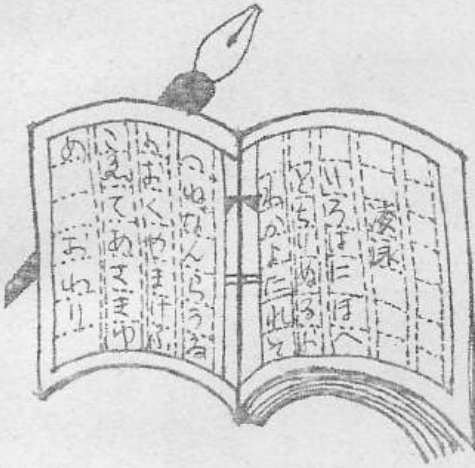 いろはにほへ
とちりぬるを
わかよたれそ
つねなんらうゐ
のおくやまけふ
こゑてあさきゆ
め おわり